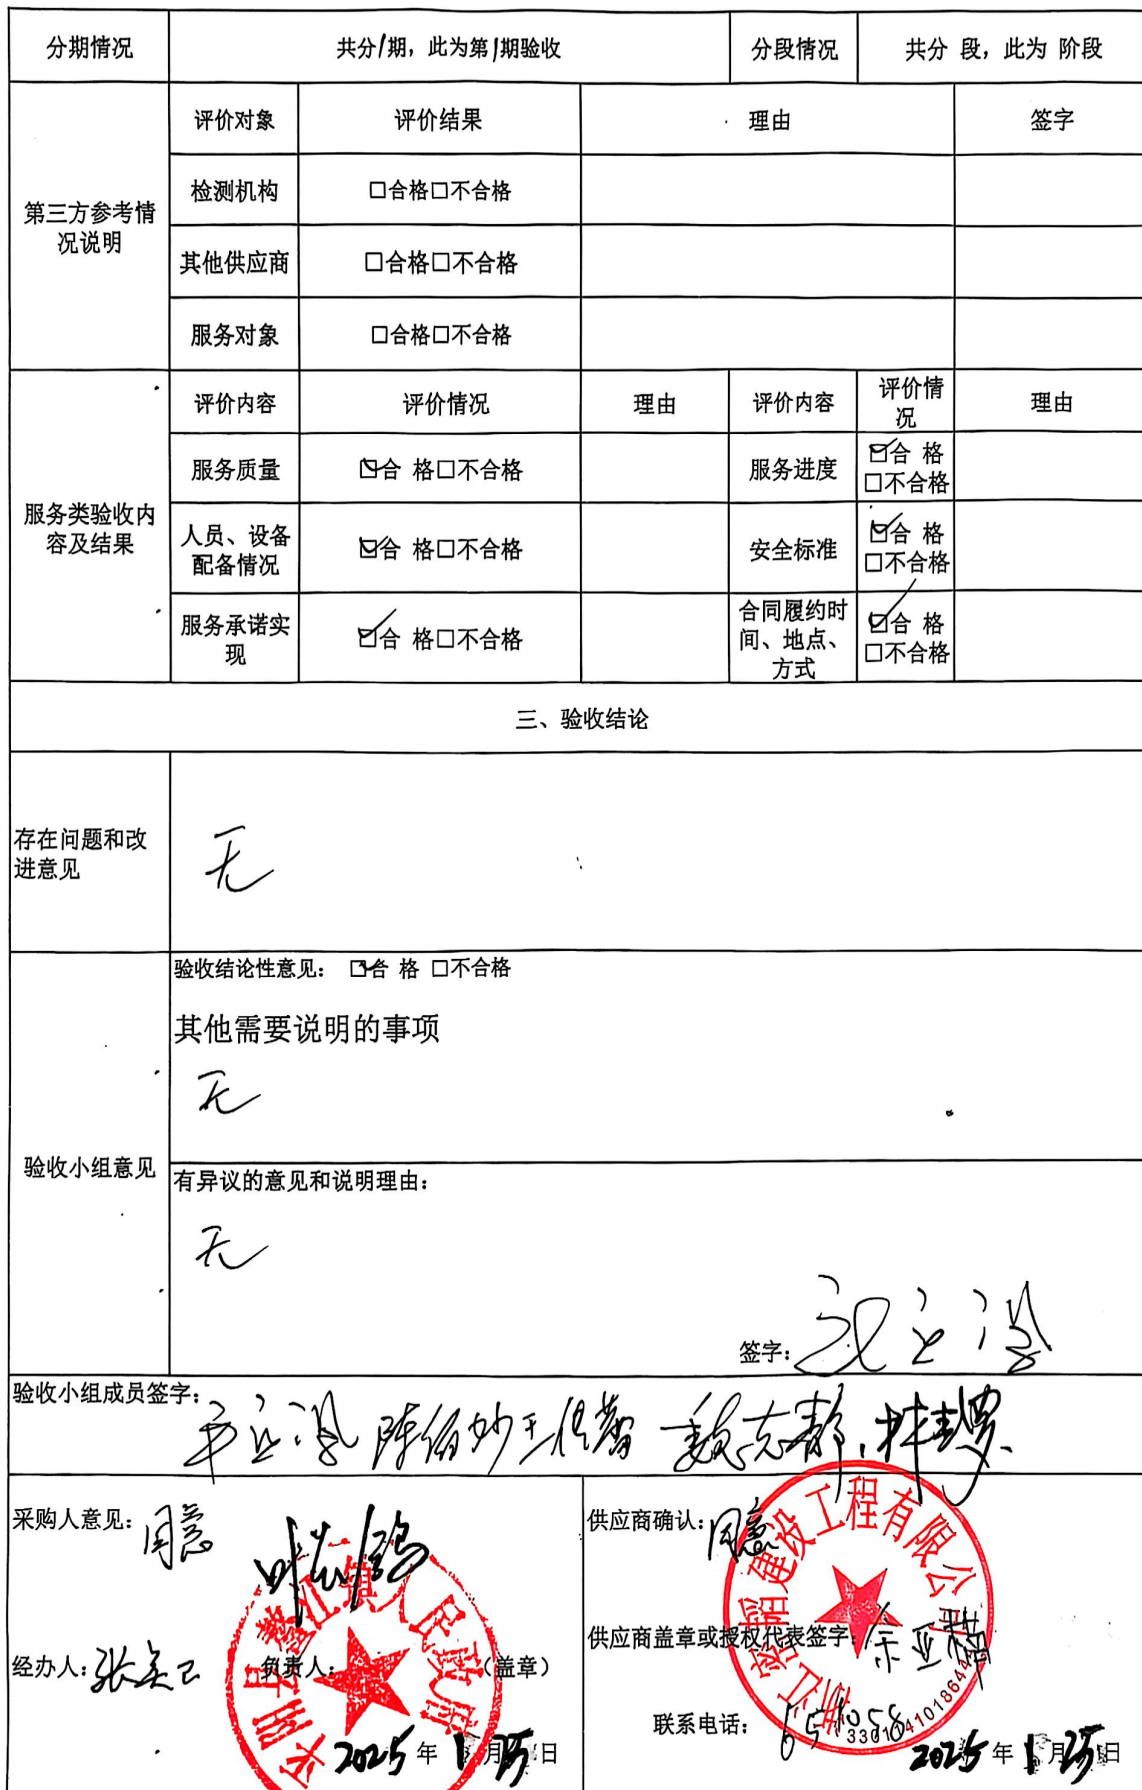 分期情况 共分1期，此为第1期验收 分段情况 共分 段，此为 阶段
第三方参考情况说明 评价对象 评价结果 理由 签字
检测机构 □合格□不合格
其他供应商 □合格□不合格
服务对象 □合格□不合格
服务类验收内容及结果 评价内容 评价情况 理由 评价内容 评价情况 理由
服务质量 ☑合 格□不合格 服务进度 ☑合 格□不合格
人员、设备配备情况 ☑合 格□不合格 安全标准 ☑合 格□不合格
服务承诺实现 ☑合 格□不合格 合同履约时间、地点、方式 ☑合 格□不合格
三、验收结论
存在问题和改进意见 无
验收小组意见 验收结论性意见： ☑合 格 □不合格
其他需要说明的事项
无
有异议的意见和说明理由：
无
签字：
验收小组成员签字：
采购人意见：同意
经办人： 负责人： （盖章）
2025 年 1 月 25 日
平阳县鳌江镇人民政府
供应商确认：同意
供应商盖章或授权代表签字：
联系电话：
2025 年 1 月 25 日
建设工程有限公司